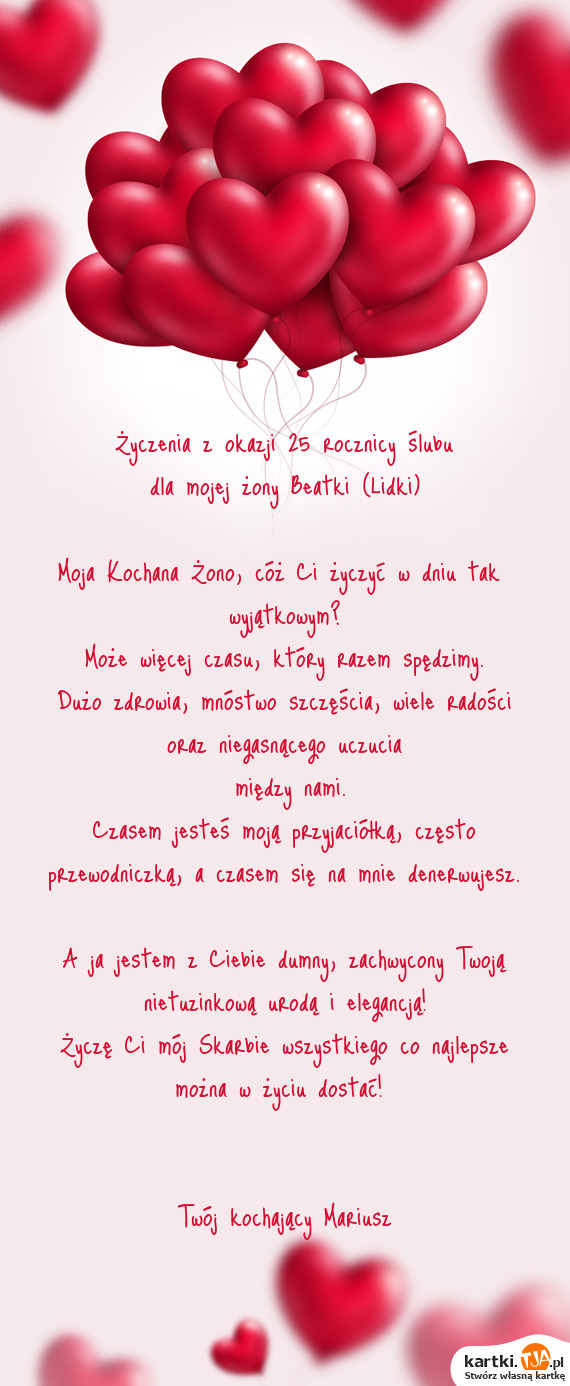 Życzenia z okazji 25 rocznicy ślubu
dla mojej żony Beatki (Lidki)
Moja Kochana Żono, cóż Ci życzyć w dniu tak
wyjątkowym?
Może więcej czasu, który razem spędzimy.
Dużo zdrowia, mnóstwo szczęścia, wiele radości
oraz niegasnącego uczucia
między nami.
Czasem jesteś moją przyjaciółką, często
przewodniczką, a czasem się na mnie denerwujesz.
A ja jestem z Ciebie dumny, zachwycony Twoją
nietuzinkową urodą i elegancją!
Życzę Ci mój Skarbie wszystkiego co najlepsze
można w życiu dostać!
Twój kochający Mariusz
kartki.TJA.pl
Stwórz własną kartkę